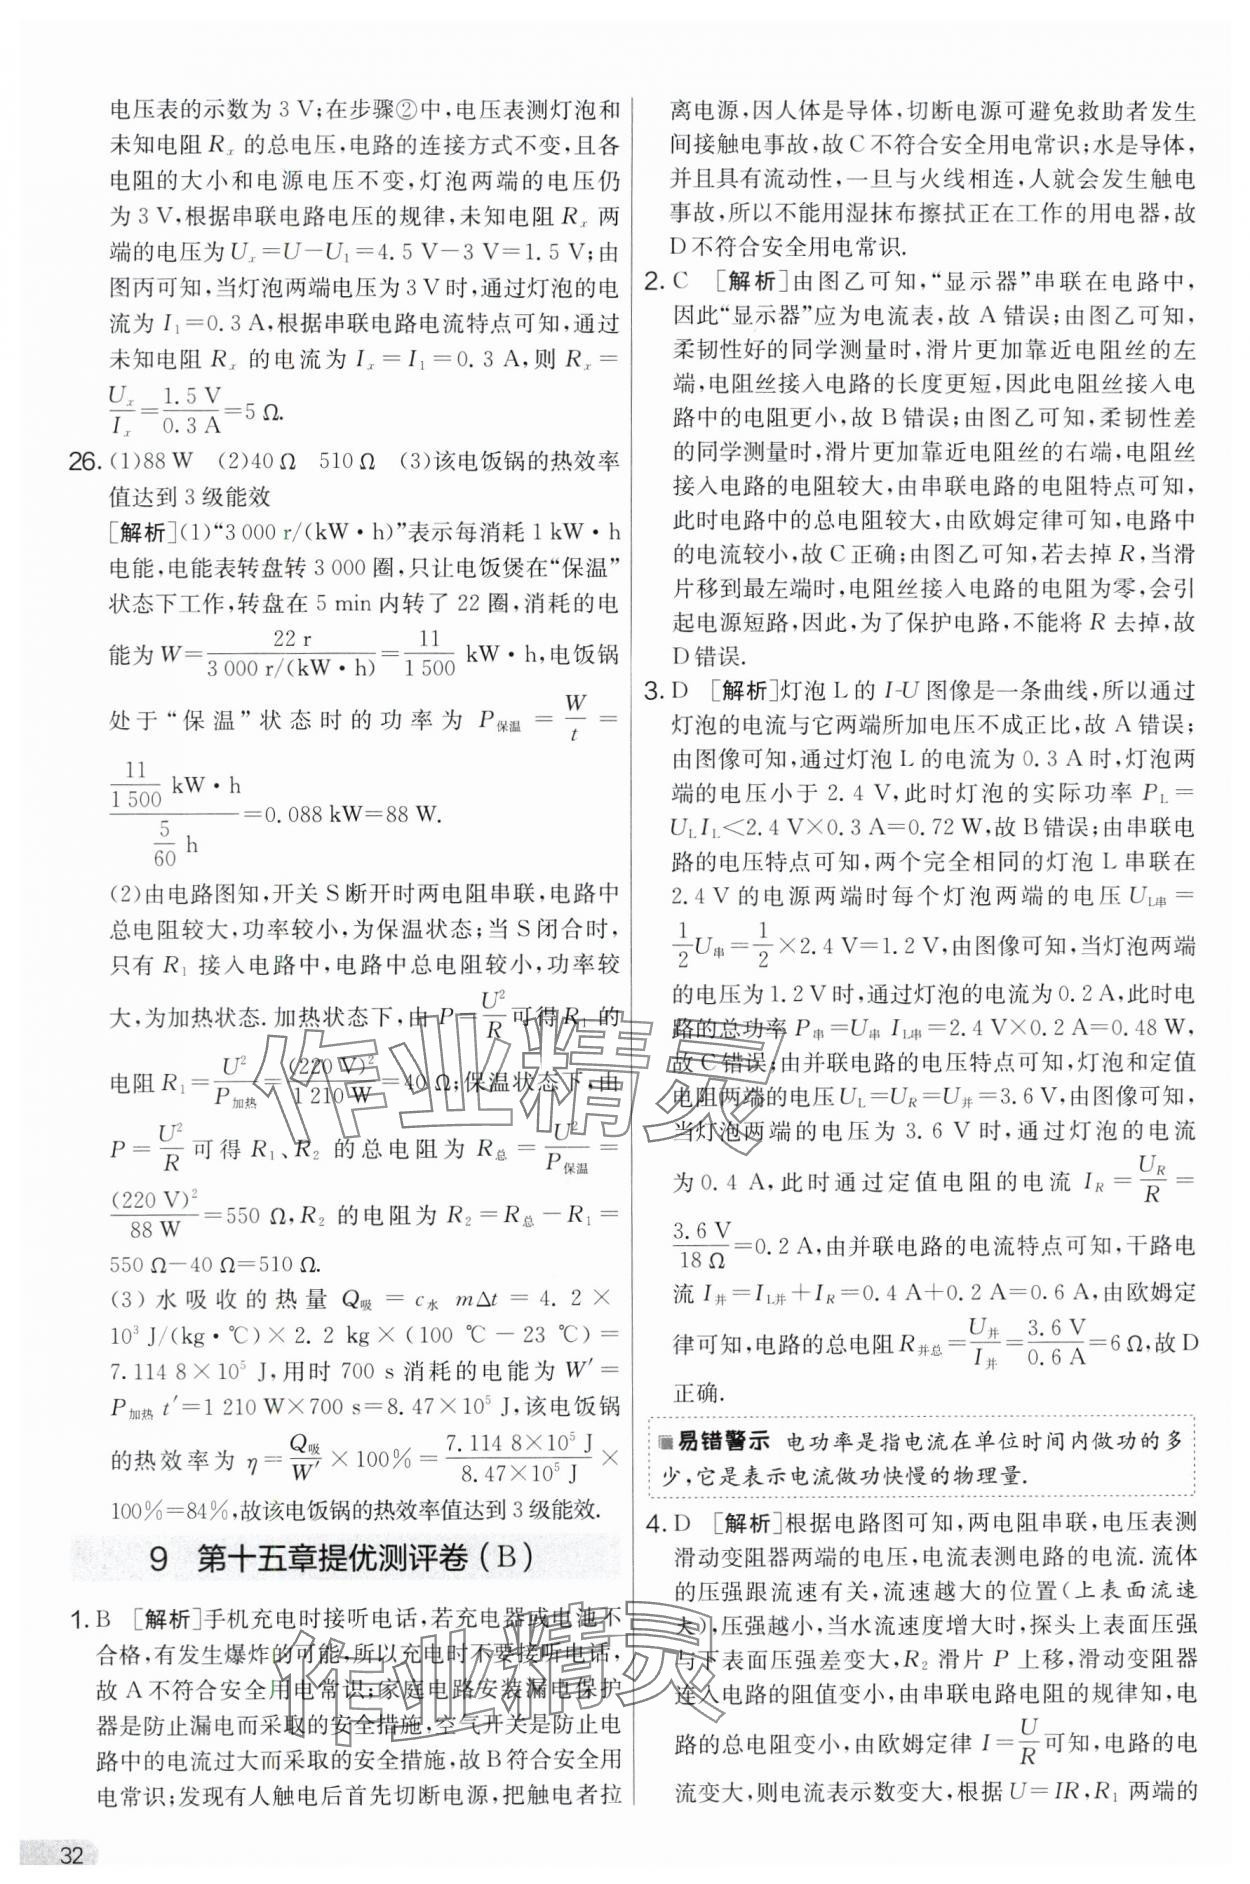 电压表的示数为 3 V;在步骤②中,电压表测灯泡和
未知电阻 Rₓ 的总电压,电路的连接方式不变,且各
电阻的大小和电源电压不变,灯泡两端的电压仍
为 3 V,根据串联电路电压的规律,未知电阻 Rₓ 两
端的电压为 Uₓ=U-U₁=4.5 V-3 V=1.5 V;由
图丙可知,当灯泡两端电压为 3 V 时,通过灯泡的电
流为 I₁=0.3 A,根据串联电路电流特点可知,通过
未知电阻 Rₓ 的电流为 Iₓ=I₁=0.3 A,则 Rₓ=
Uₓ/Iₓ=1.5 V/0.3 A=5 Ω.
26. (1)88 W (2)40 Ω 510 Ω (3)该电饭锅的热效率
值达到 3 级能效
[解析](1)“3 000 r/(kW·h)”表示每消耗 1 kW·h
电能,电能表转盘转 3 000 圈,只让电饭煲在“保温”
状态下工作,转盘在 5 min 内转了 22 圈,消耗的电
能为 W=22 r/3 000 r/(kW·h)=11/1 500 kW·h,电饭锅
处于“保温”状态时的功率为 P保温=W/t=
(11/1 500 kW·h)/(5/60 h)=0.088 kW=88 W.
(2)由电路图知,开关 S 断开时两电阻串联,电路中
总电阻较大,功率较小,为保温状态;当 S 闭合时,
只有 R₁ 接入电路中,电路中总电阻较小,功率较
大,为加热状态.加热状态下,由 P=U²/R可得 R₁ 的
电阻 R₁=U²/P加热=(220 V)²/1 210 W=40 Ω;保温状态下,由
P=U²/R 可得 R₁、R₂ 的总电阻为 R总=U²/P保温=
(220 V)²/88 W=550 Ω,R₂ 的电阻为 R₂=R总-R₁=
550 Ω-40 Ω=510 Ω.
(3)水吸收的热量 Q吸=c水 mΔt=4.2×
10³ J/(kg·℃)×2.2 kg×(100 ℃-23 ℃)=
7.114 8×10⁵ J,用时 700 s 消耗的电能为 W′=
P加热 t′=1 210 W×700 s=8.47×10⁵ J,该电饭锅
的热效率为 η=Q吸/W′×100%=7.114 8×10⁵ J/8.47×10⁵ J×
100%=84%,故该电饭锅的热效率值达到 3 级能效.
9 第十五章提优测评卷(B)
1. B [解析]手机充电时接听电话,若充电器或电池不
合格,有发生爆炸的可能,所以充电时不要接听电话,
故 A 不符合安全用电常识;家庭电路安装漏电保护
器是防止漏电而采取的安全措施,空气开关是防止电
路中的电流过大而采取的安全措施,故 B 符合安全用
电常识;发现有人触电后首先切断电源,把触电者拉
32
离电源,因人体是导体,切断电源可避免救助者发生
间接触电事故,故 C 不符合安全用电常识;水是导体,
并且具有流动性,一旦与火线相连,人就会发生触电
事故,所以不能用湿抹布擦拭正在工作的用电器,故
D 不符合安全用电常识.
2. C [解析]由图乙可知,“显示器”串联在电路中,
因此“显示器”应为电流表,故 A 错误;由图乙可知,
柔韧性好的同学测量时,滑片更加靠近电阻丝的左
端,电阻丝接入电路的长度更短,因此电阻丝接入电
路中的电阻更小,故 B 错误;由图乙可知,柔韧性差
的同学测量时,滑片更加靠近电阻丝的右端,电阻丝
接入电路的电阻较大,由串联电路的电阻特点可知,
此时电路中的总电阻较大,由欧姆定律可知,电路中
的电流较小,故 C 正确;由图乙可知,若去掉 R,当滑
片移到最左端时,电阻丝接入电路的电阻为零,会引
起电源短路,因此,为了保护电路,不能将 R 去掉,故
D 错误.
3. D [解析]灯泡 L 的 I-U 图像是一条曲线,所以通过
灯泡的电流与它两端所加电压不成正比,故 A 错误;
由图像可知,通过灯泡 L 的电流为 0.3 A 时,灯泡两
端的电压小于 2.4 V,此时灯泡的实际功率 P_L=
U_L I_L<2.4 V×0.3 A=0.72 W,故 B 错误;由串联电
路的电压特点可知,两个完全相同的灯泡 L 串联在
2.4 V 的电源两端时每个灯泡两端的电压 U_L串=
1/2 U串=1/2×2.4 V=1.2 V,由图像可知,当灯泡两端
的电压为 1.2 V 时,通过灯泡的电流为 0.2 A,此时电
路的总功率 P串=U串 I_L串=2.4 V×0.2 A=0.48 W,
故 C 错误;由并联电路的电压特点可知,灯泡和定值
电阻两端的电压 U_L=U_R=U并=3.6 V,由图像可知,
当灯泡两端的电压为 3.6 V 时,通过灯泡的电流
为 0.4 A,此时通过定值电阻的电流 I_R=U_R/R=
3.6 V/18 Ω=0.2 A,由并联电路的电流特点可知,干路电
流 I并=I_L并+I_R=0.4 A+0.2 A=0.6 A,由欧姆定
律可知,电路的总电阻 R并总=U并/I并=3.6 V/0.6 A=6 Ω,故 D
正确.
易错警示 电功率是指电流在单位时间内做功的多
少,它是表示电流做功快慢的物理量.
4. D [解析]根据电路图可知,两电阻串联,电压表测
滑动变阻器两端的电压,电流表测电路的电流.流体
的压强跟流速有关,流速越大的位置(上表面流速
大),压强越小,当水流速度增大时,探头上表面压强
与下表面压强差变大,R₂ 滑片 P 上移,滑动变阻器
连入电路的阻值变小,由串联电路电阻的规律知,电
路的总电阻变小,由欧姆定律 I=U/R可知,电路的电
流变大,则电流表示数变大,根据 U=IR,R₁ 两端的
作业精灵
作业精灵